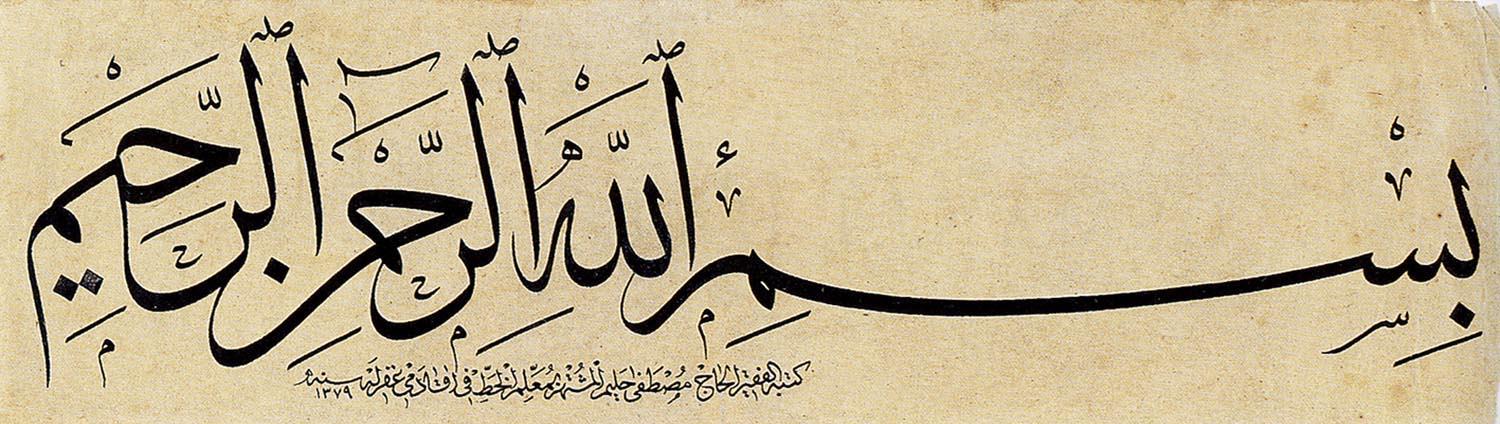 بِسْمِ ٱللَّهِ ٱلرَّحْمٰنِ ٱلرَّحِيمِ
كتبه الفقير الحاج مصطفى حليم المشتهر بمعلم الخط في اقادمى غفر له سنه ١٣٧٩